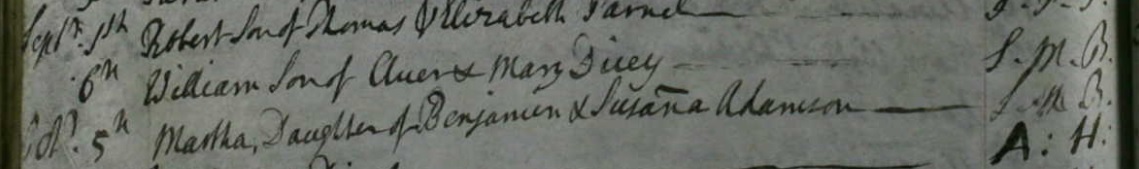 Sept. 1st Robert Son of Thomas & Elizabeth Parnel
6th William Son of Auer & Mary Dicey S. M. B.
Oct. 5th Martha, Daughter of Benjamin & Susana Adamson S M B.
A: H: